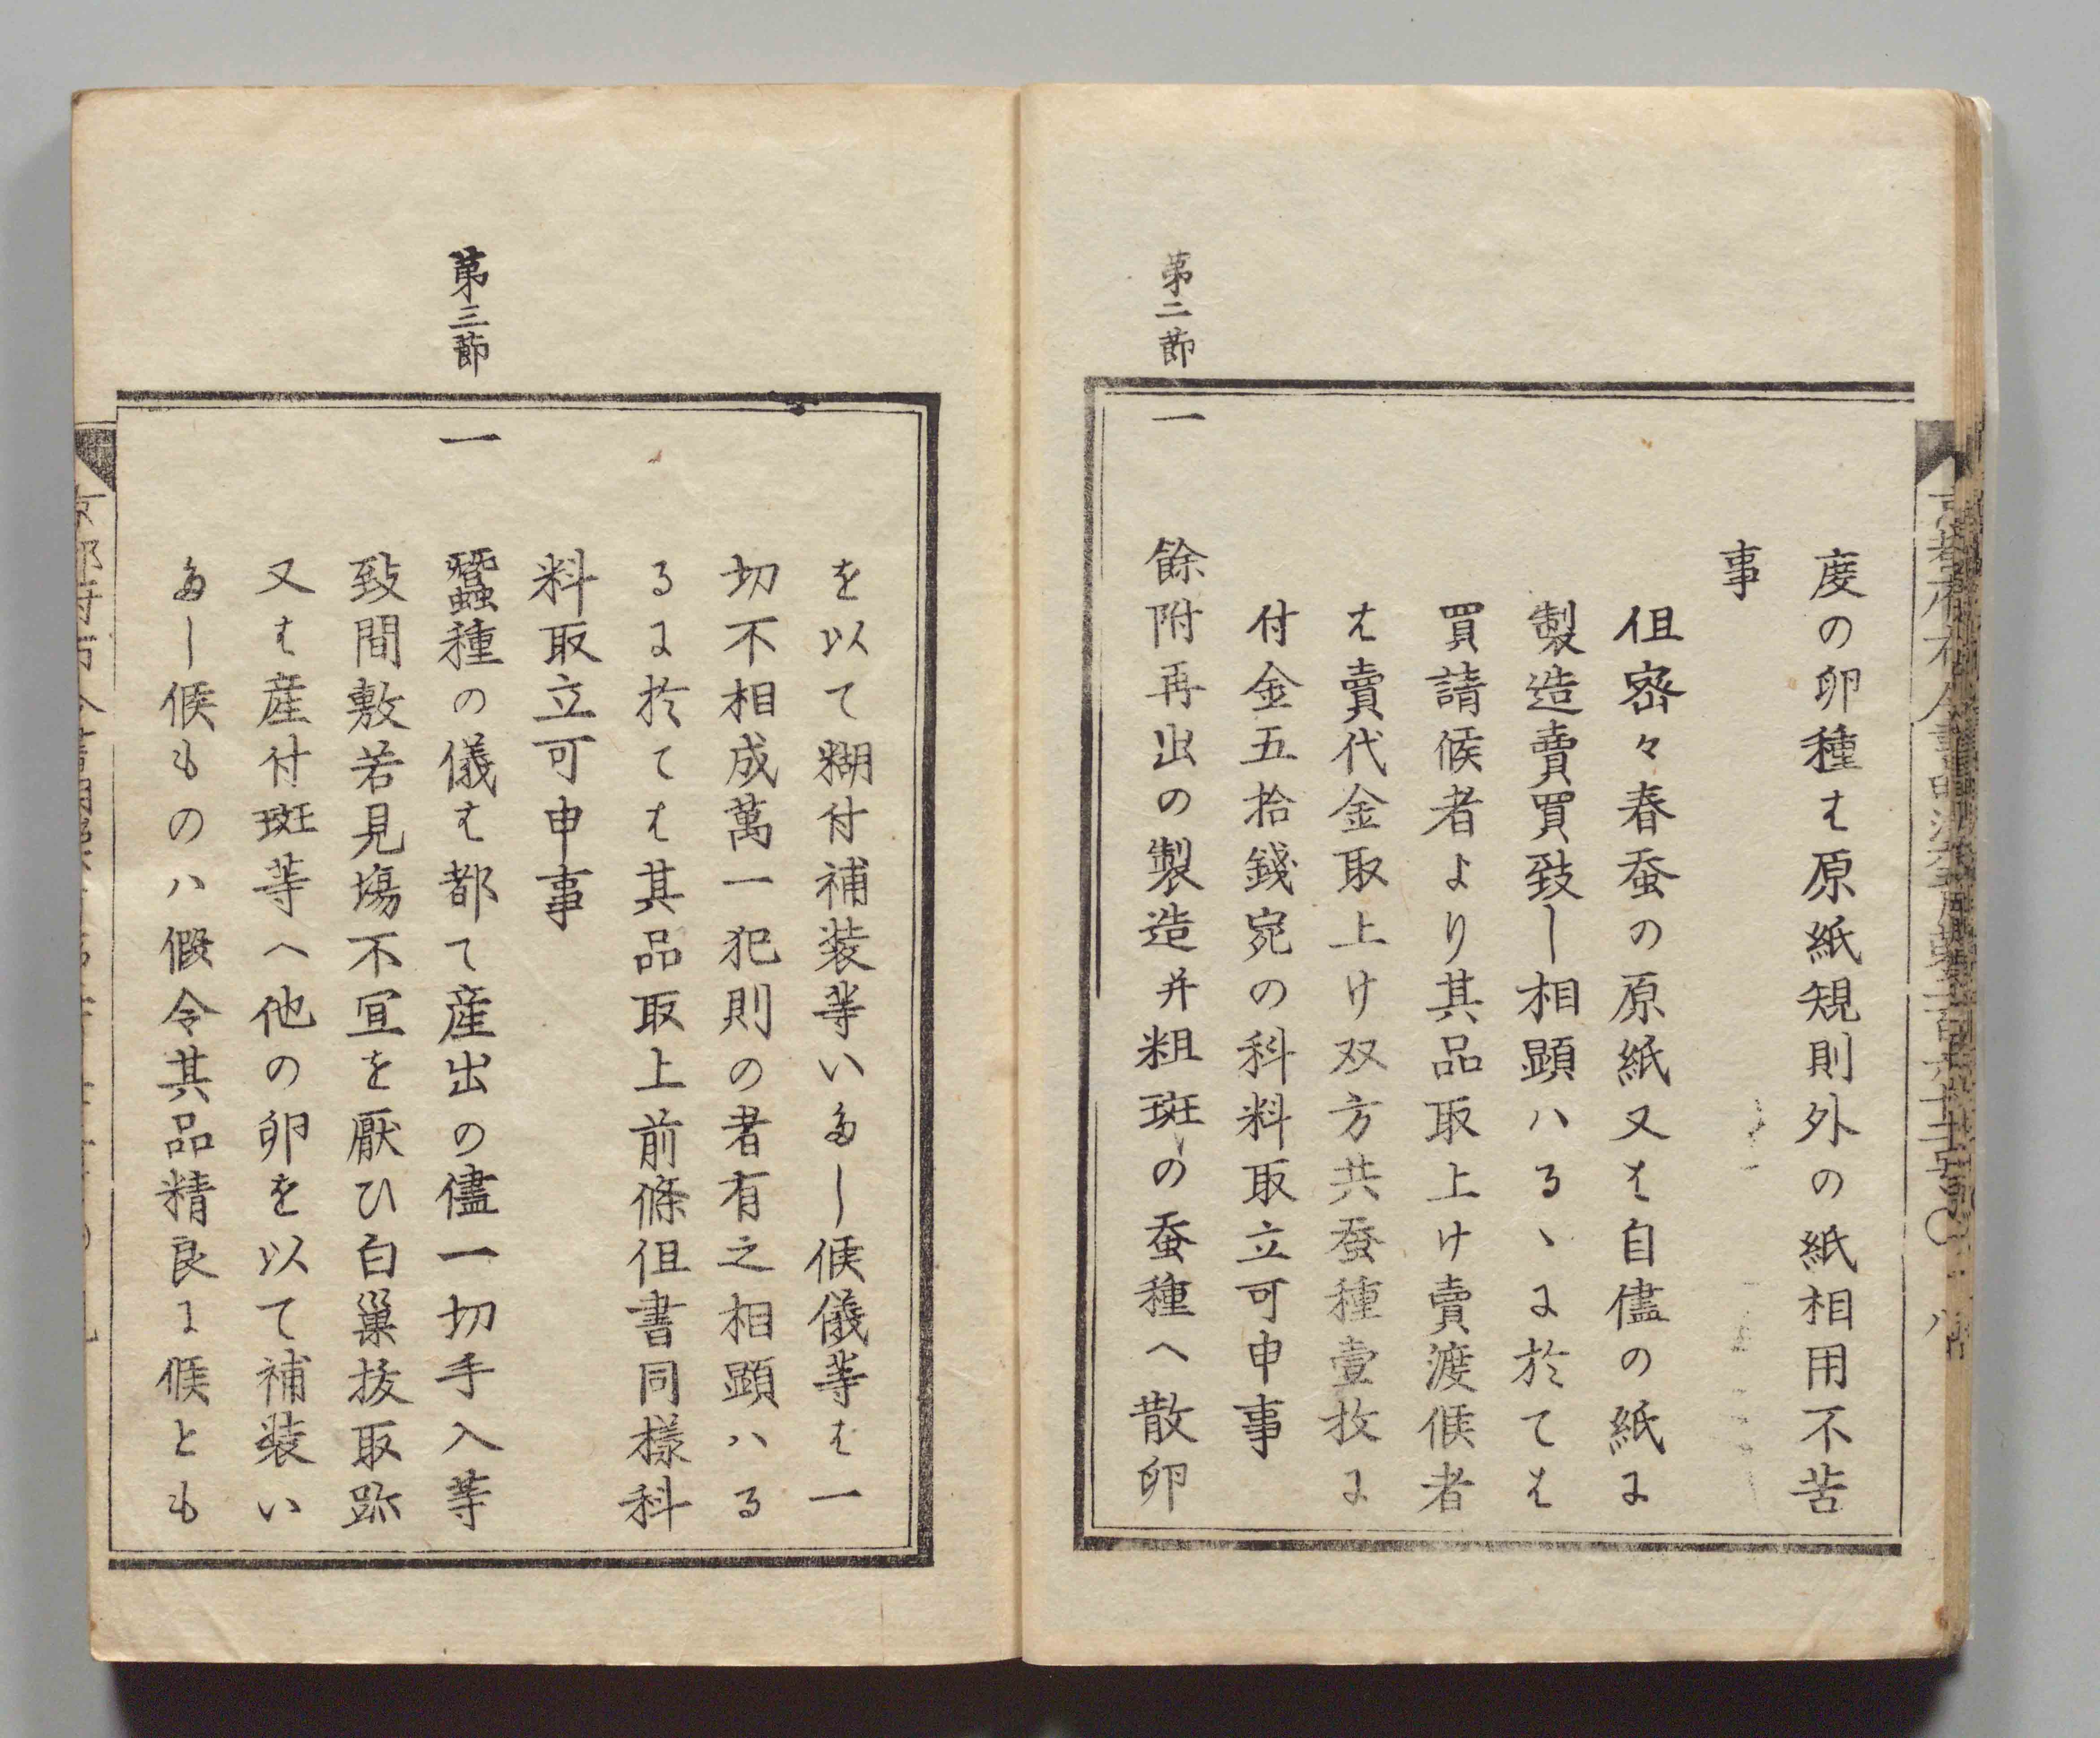 度の卵種は原紙規則外の紙相用不苦
事
但密々春蚕の原紙又は自儘の紙に
製造賣買致し相顕ハるゝに於ては
買請候者より其品取上け賣渡候者
は賣代金取上け双方共蚕種壹枚に
付金五拾錢宛の科料取立可申事
第二節
一
餘附再出の製造并粗斑の蚕種へ散卵
を以て糊付補装等いたし候儀等は一
切不相成萬一犯則の者有之相顕ハる
るに於ては其品取上前條但書同様科
料取立可申事
第三節
一
蠶種の儀は都て産出の儘一切手入等
致間敷若見塲不宜を厭ひ白巢抜取跡
又は産付斑等へ他の卵を以て補装い
たし候ものハ假令其品精良に候とも